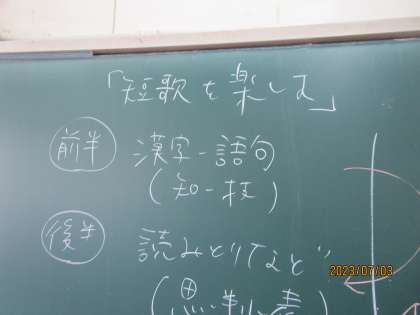 「短歌を楽しむ」
前半 漢字-語句
(知-技)
後半 読みとりてよど
(思・判・表
2023/07/03